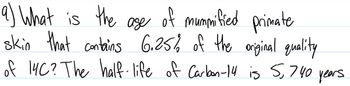 9) What is the age of mummified primate
skin that contains 6.25% of the original quality
of 14C? The half-life of Carbon-14 is 5,740 years